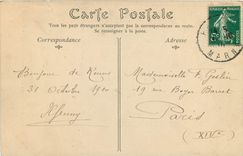 Carte Postale
Tous les pays étrangers n'acceptent pas la correspondance au recto.
Se renseigner à la poste.
Correspondance
Adresse
MARNE
Bonjour de Reims
31 Octobre
Mademoiselle
19 rue Boyer Barret
Paris
(XIVe)